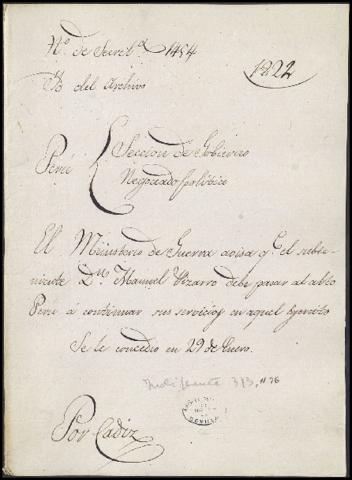 N.º de Secret.ª 1454
1822
Yd del Archivo
Perú { Seccion de Gobierno
Negociado político
El Ministerio de Guerra avisa q.e el subte-
niente D.n Manuel Pizarro debe pasar al alto
Peru á continuar sus servicios en aquel Egercito
Se le concedio en 29 de Enero.
Indiferente 313, n 76
Por Cadiz
SEVILLA